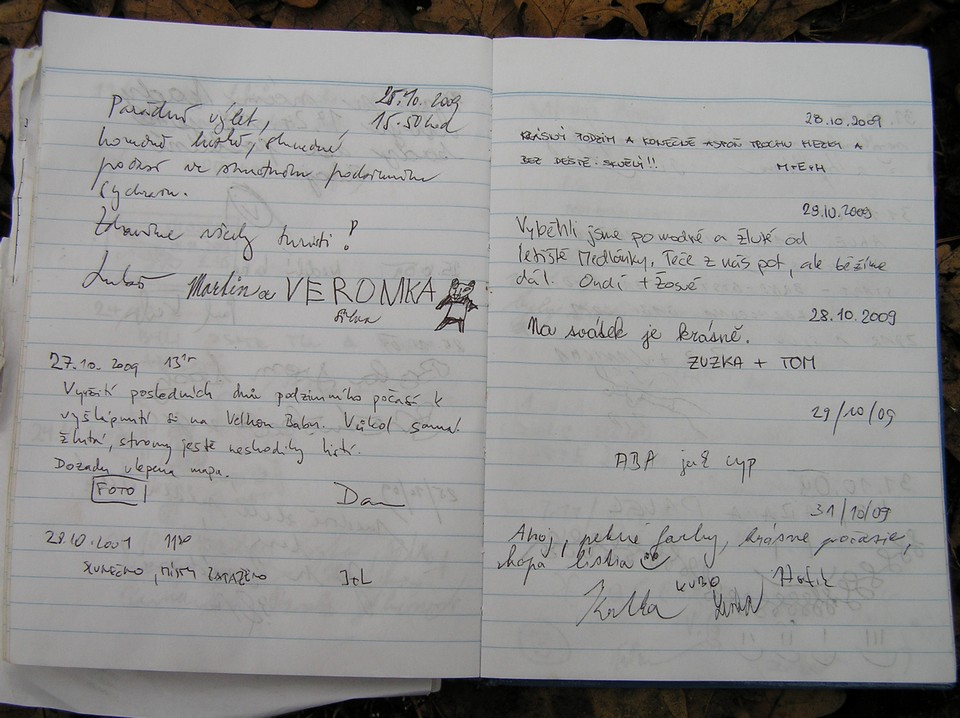 25.10.2009
Parádní výlet, 15.50 hod
hodně listí,
podzim ve smutném podzimním
sychravu.
Zdravíme všechny turisti!
Luboš Martin a VERONIKA
27.10.2009 13¹⁵
Využití posledních dnů podzimního počasí k
vyšlápnutí si na Velkou Babu. Vůkol samá
žlutá, stromy ještě neshodily listí.
Dozadu vlepena mapa.
FOTO Dan
28.10.2009 11³⁰
SLUNEČNO, MÍSTY ZATAŽENO J+L
28.10.2009
KRÁSNÝ PODZIM A KONEČNĚ ASPOŇ TROCHU HEZKY A
BEZ DEŠTĚ. SKVĚLÝ!! M+E+H
28.10.2009
Vyběhli jsme po modré a žluté od
letiště Medlánky. Teče z nás pot, ale běžíme
dál. Ondi +
28.10.2009
Na svátek je krásně.
ZUZKA + TOM
29/10/09
ABA juž cyp
31/10/09
Ahoj, pekné farby, krásne počasie,
kopa lístia
Katka KUBO Lenka